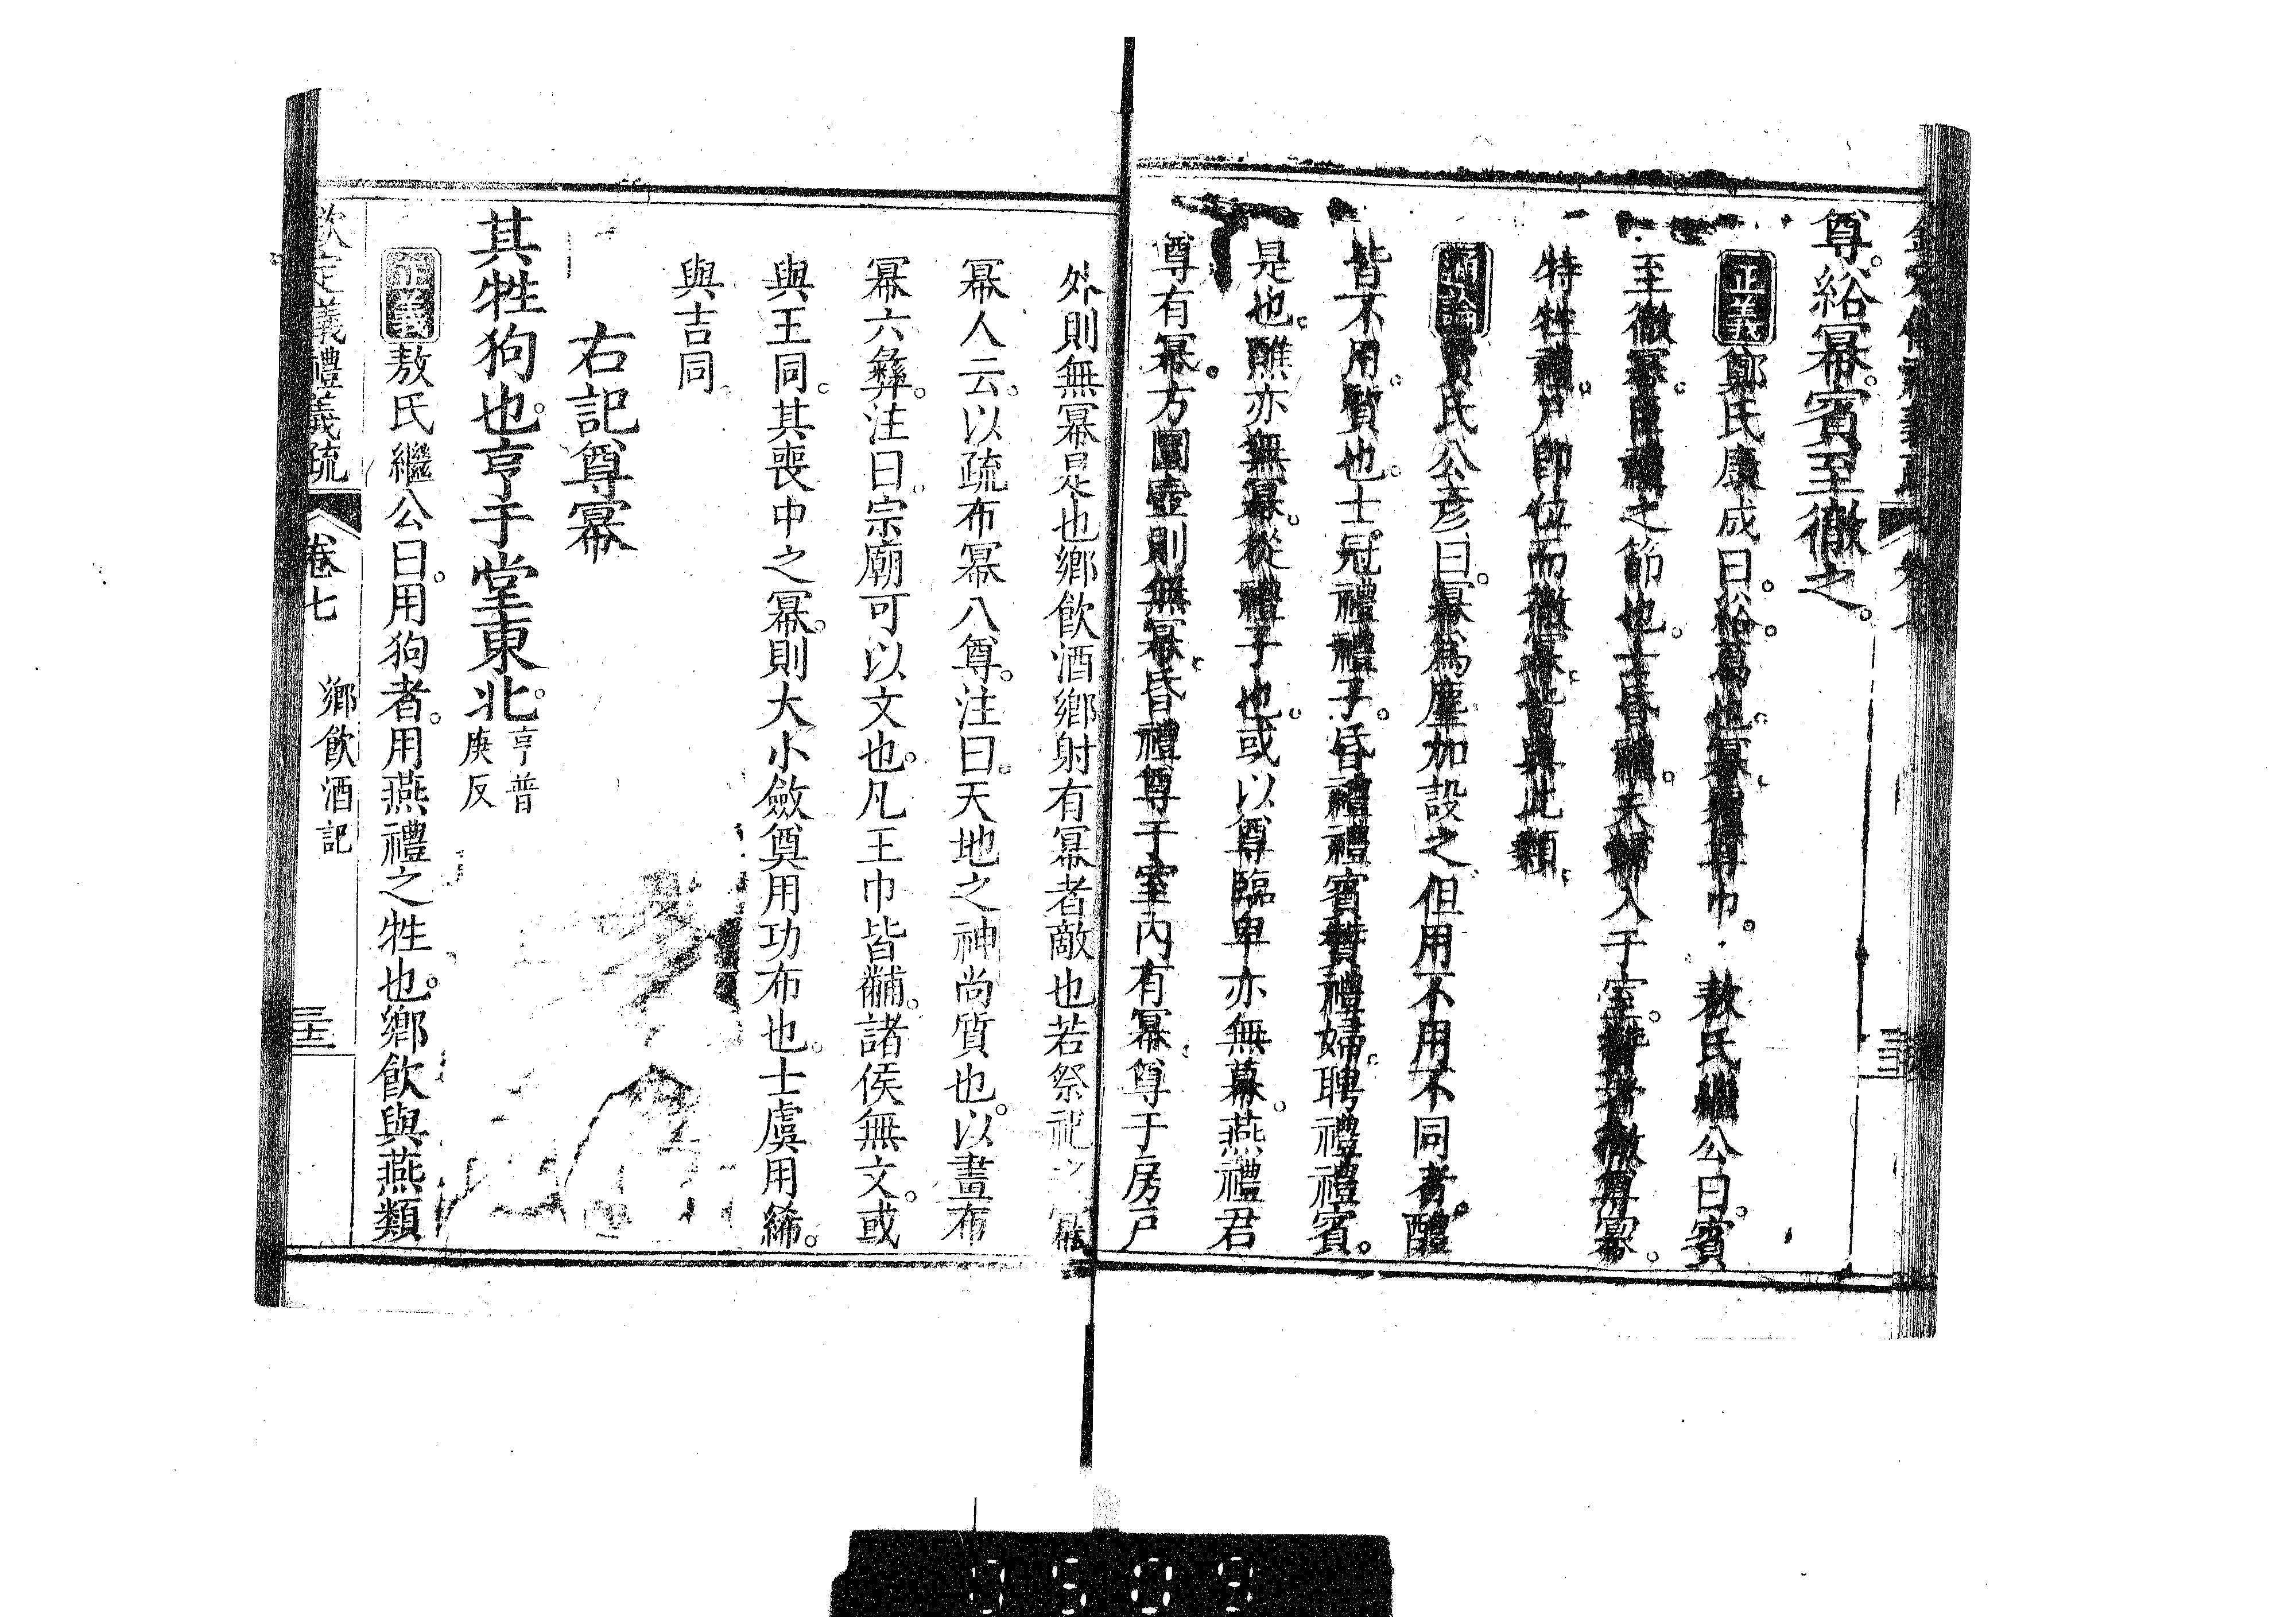 尊。綌冪。賓至徹之。
正義鄭氏康成曰。綌。葛也。冪。覆尊巾。敖氏繼公曰。賓
至徹冪。醴之節也。士昏禮。夫婦入于室。贊者徹尊冪。
特牲禮。尸即位而徹冪。皆與此類。
通論賈氏公彥曰。冪爲塵加設之。但用不用不同者。醴
皆不用。質也。士冠禮禮子。昏禮禮賓贊禮婦。聘禮禮賓。
是也。醮亦無冪。從禮子也。或以尊臨卑亦無冪。燕禮君
尊有冪。方圜壺則無冪。昏禮尊于室內有冪。尊于房戶
外則無冪是也鄉飲酒鄉射有冪者敵也若祭祀之冪
冪人云。以疏布冪八尊。注曰。天地之神尚質也。以畫布
冪六彝。注曰。宗廟可以文也。凡王巾皆黼。諸侯無文。或
與王同。其喪中之冪。則大小斂奠用功布也。士虞用絺。
與吉同
右記尊冪
其牲狗也。亨于堂東北。亨普庚反
正義敖氏繼公曰。用狗者。用燕禮之牲也。鄉飲與燕類
欽定儀禮義疏 卷七 鄉飲酒記